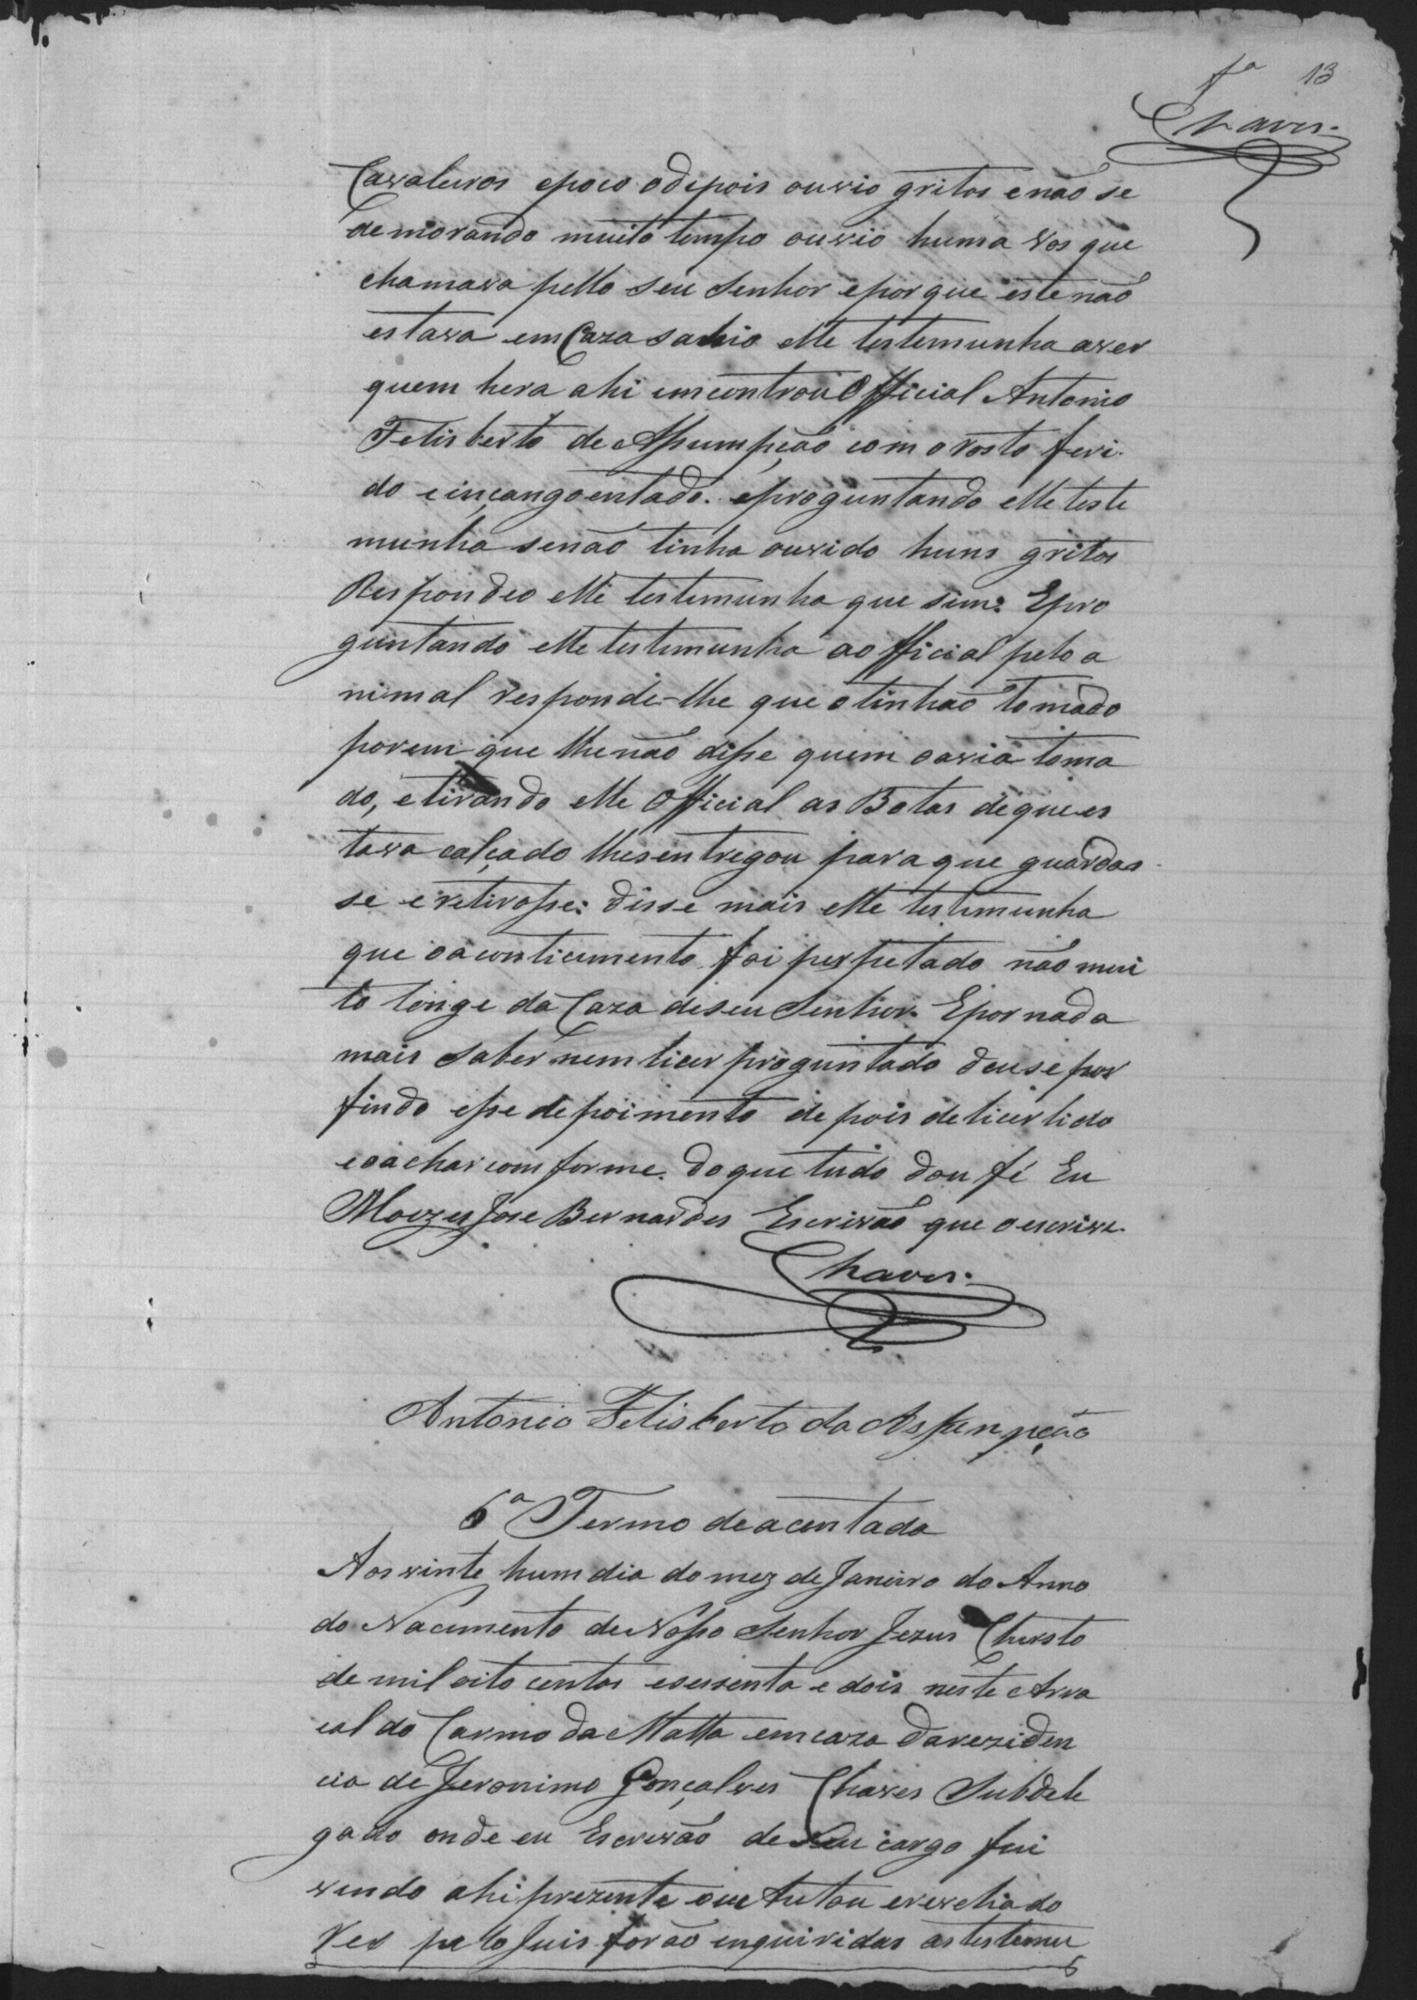 fª 13
Chaves.
Cavaleiros epoco odepois ouvio gritos enão se
demorando muito tempo ouvio huma vos que
chamava pello seu Senhor eporque estenão
estava em Caza sahio elle testemunha aver
quem hera ahi emcontrou Official Antonio
Felisberto de Assumpção com o rosto feri-
do einçangoentado. eproguntando elle teste
munha senão tinha ouvido huns gritos
Respondeo elle testemunha que sim: Epro
guntando elle testemunha ao official pelo a
nimal responde-lhe que otinhão tomado
porem que lhenão disse quem oavia toma
do, etirando elle Official as Botas deque es
tava calçado lhesentregou para que guardas-
se eretirosse: disse mais elle testemunha
que oaconticimento foi perpetado não mui
to longe da Caza deseu Senhor. Epor nada
mais saber nem licer proguntado deuse por
findo esse depoimento depois delicerlido
eoachar comforme. doque tudo dou fé Eu
Moezes Jose Bernardes Escrivão que oescrive.
Chaves.
Antonio Felisberto da Assumpção
6ª Termo deacentada
Aos vinte hum dia domez de Janeiro do Anno
do Nacimento de Nosso Senhor Jezus Christo
de mil oito centos esesenta e dois neste Arra
ial do Carmo da Matta emcaza dareziden
cia de Jeronimo Gonçalves Chaves Subdele
gado onde eu Escrivão de seu cargo fui
vindo ahi prezente
Res pelo Juis forão enquiridas as testemu